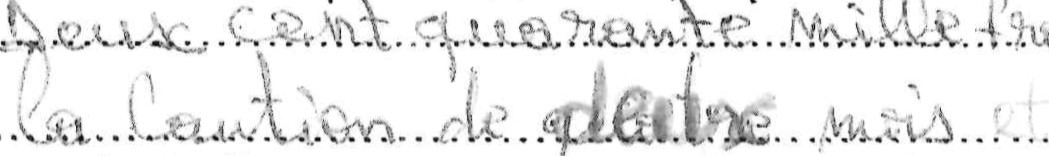 Deux cent quarante mille fra
la Caution de mois et